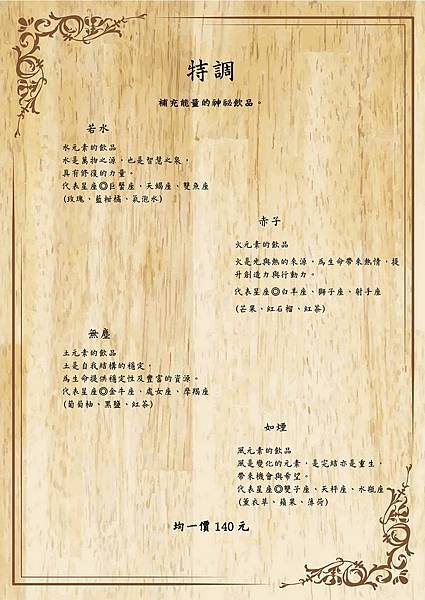 特調
補充能量的神祕飲品。
若水
水元素的飲品
水是萬物之源，也是智慧之泉，
具有修復的力量。
代表星座◎巨蟹座、天蠍座、雙魚座
(玫瑰、藍柑橘、氣泡水)
赤子
火元素的飲品
火是光與熱的來源，為生命帶來熱情，提
升創造力與行動力。
代表星座◎白羊座、獅子座、射手座
(芒果、紅石榴、紅茶)
無塵
土元素的飲品
土是自我結構的穩定，
為生命提供穩定性及豐富的資源。
代表星座◎金牛座、處女座、摩羯座
(葡萄柚、黑鹽、紅茶)
如煙
風元素的飲品
風是變化的元素，是完結亦是重生，
帶來機會與希望。
代表星座◎雙子座、天秤座、水瓶座
(薰衣草、蘋果、薄荷)
均一價 140 元